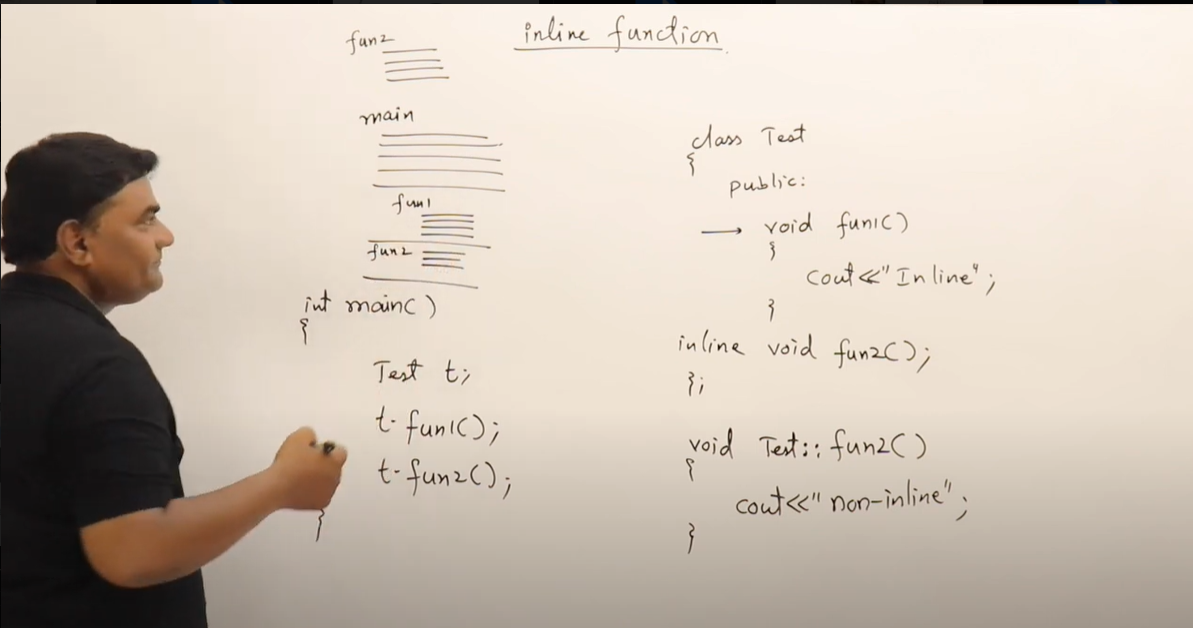 inline function
fun2
main
fun1
fun2
int main()
{
Test t;
t.fun1();
t.fun2();
}
class Test
{
public:
void fun1()
{
cout<<"Inline";
}
inline void fun2();
};
void Test::fun2()
{
cout<<"non-inline";
}